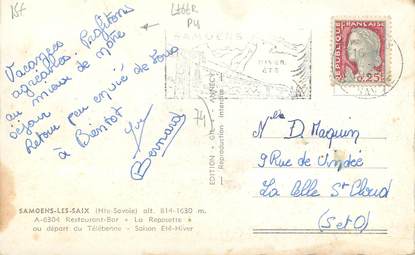 15F
LASER
P4
SAMOENS
HIVER
ÉTÉ
RÉPUBLIQUE FRANÇAISE
0,25
Vacances
agréables. Profitons
au mieux de notre
séjour
Retour peu envié de tous
à Bientôt
Bernard
74
EDITION
ANNECY
Reproduction interdite
Melle D. Maquin
9 Rue de Vindée
La Celle St Cloud
(S et O)
SAMOENS-LES-SAIX (Hte-Savoie) alt. 814-1630 m.
A-6304 Restaurant-Bar « La Reposette »
au départ du Télébenne - Saison Eté-Hiver